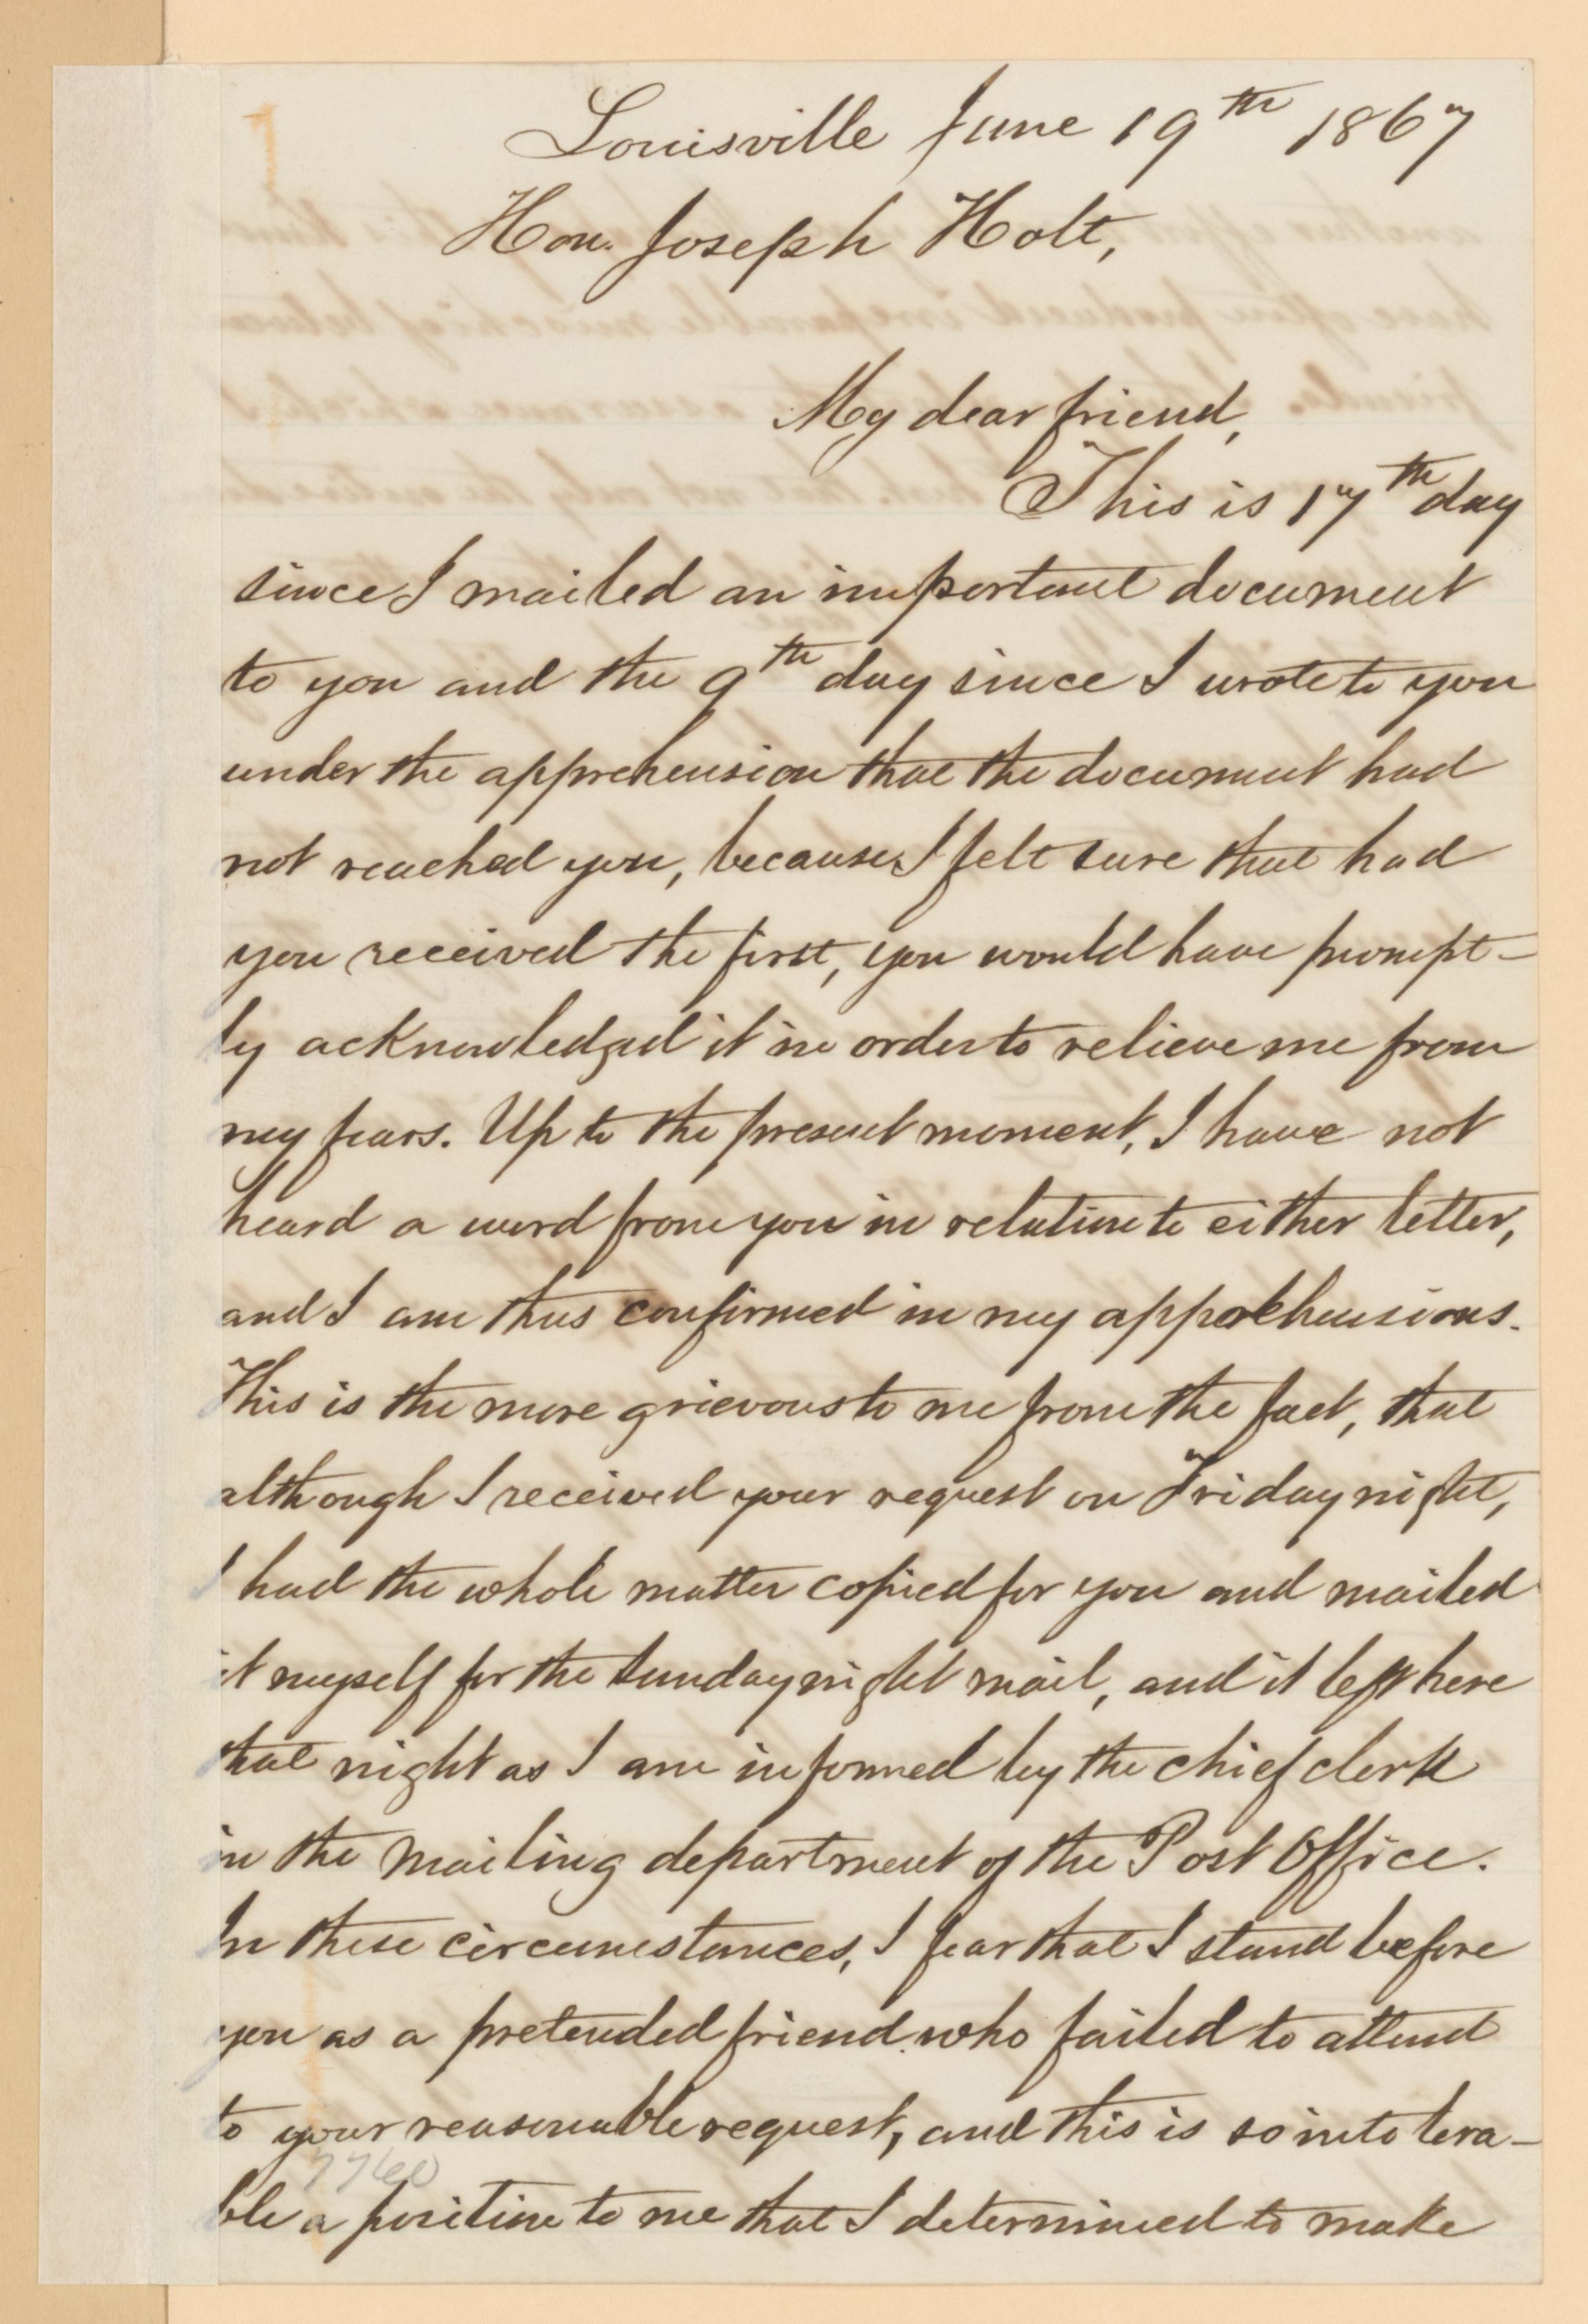 Louisville June 19th 1867
Hon. Joseph Holt,
My dear friend,
This is 17th day
since I mailed an important document
to you and the 9th day since I wrote to you
under the apprehension that the document had
not reached you, because I felt sure that had
you received the first, you would have prompt-
ly acknowledged it in order to relieve me from
my fears. Up to the present moment, I have not
heard a word from you in relation to either letter,
and I am thus confirmed in my apprehensions.
This is the more grievous to me from the fact, that
although I received your request on Friday night,
I had the whole matter copied for you and mailed
it myself for the Sunday night mail, and it left here
that night as I am informed by the chief clerk
in the mailing department of the Post Office.
In these circumstances, I fear that I stand before
you as a pretended friend who failed to attend
to your reasonable request, and this is so intolera-
7760
ble a position to me that I determined to make